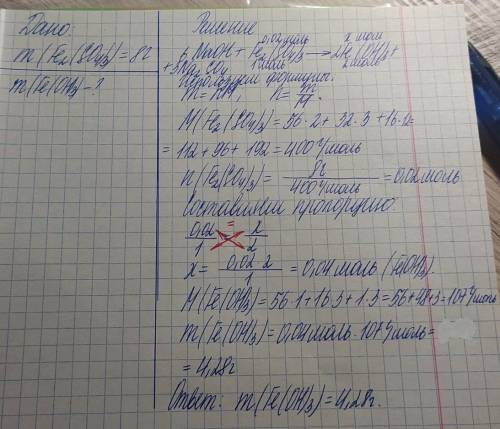 Дано:
m(Fe₂(SO₄)₃)=8г
m(Fe(OH)₃)-?
Решение
0,02моль х моль
6 NaOH + Fe₂(SO₄)₃ → 2Fe(OH)₃+
1моль 2моль
+3Na₂SO₄
Используем формулы:
m=n·M, n=m/M.
M(Fe₂(SO₄)₃)=56·2+32·3+16·12=
=112+96+192=400г/моль
n(Fe₂(SO₄)₃)=8г/400г/моль=0,02моль
Составляем пропорцию:
0,02/1 = х/2
х=0,02·2/1=0,04моль (Fe(OH)₃).
M(Fe(OH)₃)=56·1+16·3+1·3=56+48+3=107г/моль
m(Fe(OH)₃)=0,04моль·107г/моль=
=4,28г
Ответ: m(Fe(OH)₃)=4,28г.